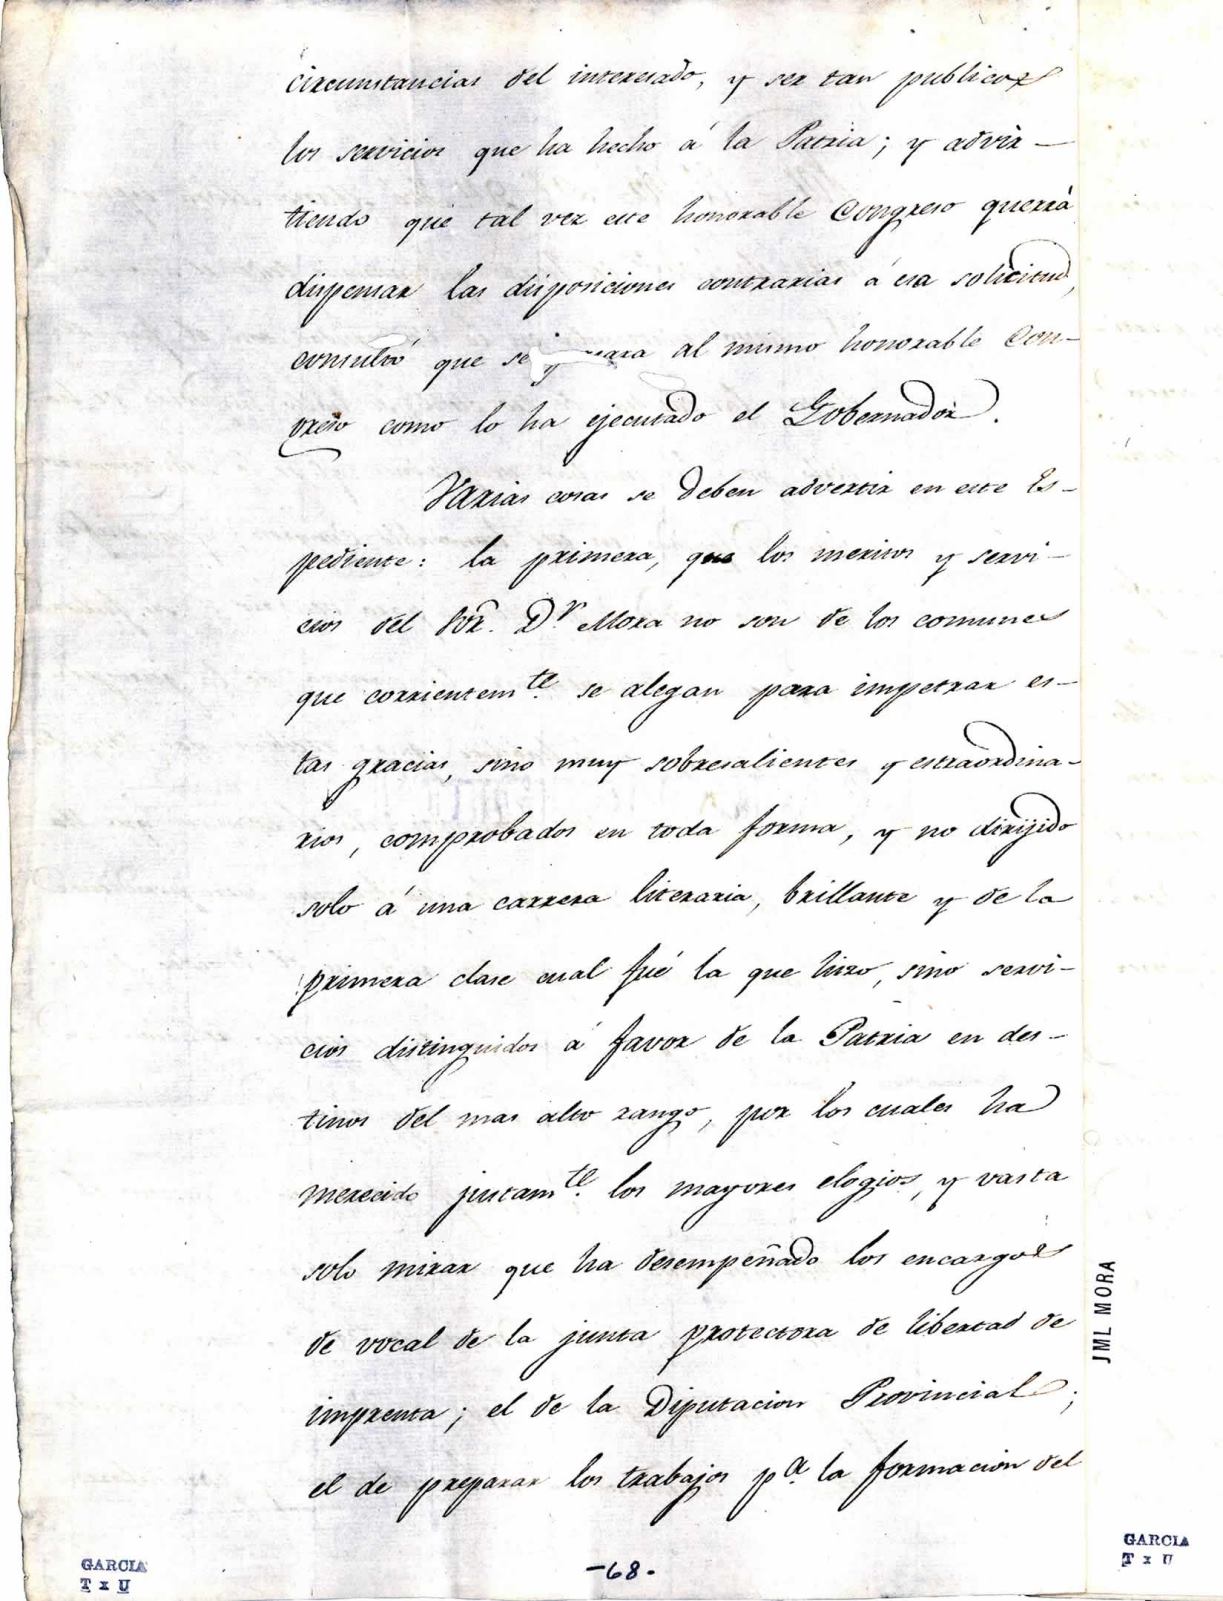 circunstancias del interesado, y ser tan publicos
los servicios que ha hecho á la Patria; y advir-
tiendo que tal vez este honorable Congreso querrá
dispensar las disposiciones contrarias á esa solicitud,
consultó que se al mismo honorable Con-
greso como lo ha ejecutado el Gobernador.
Varias cosas se deben advertir en este Es-
pediente: la primera, que los meritos y servi-
cios del Sõr. D.r Mora no son de los comunes
que corrientem.te se alegan para impetrar es-
tas gracias, sino muy sobresalientes y estraordina-
rios, comprobados en toda forma, y no dirijido
solo á una carrera literaria, brillante y de la
primera clase cual fué la que hizo, sino servi-
cios distinguidos á favor de la Patria en des-
tinos del mas alto rango, por los cuales ha
merecido justam.te los mayores elogios, y vasta
solo mirar que ha desempeñado los encargos
de vocal de la junta protectora de libertad de
imprenta; el de la Diputacion Provincial;
el de preparar los trabajos p.a la formacion del
JML MORA
GARCIA
T x U
-68.
GARCIA
T x U